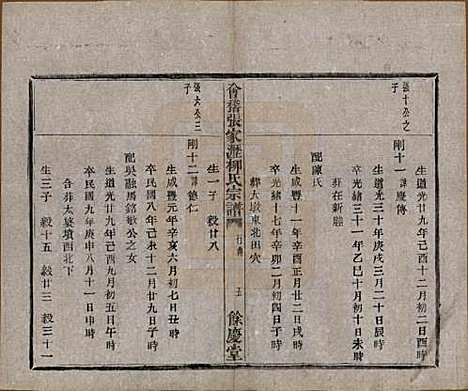 張十公之子
剛十一 諱慶傳
生道光廿九年己酉十二月初二日卯時
生道光三十年庚戌三月二十日辰時
卒光緒三十一年乙巳十月十日未時
葬在新
配陳氏
生咸豐十一年辛酉正月廿二日戌時
卒光緒十七年辛卯二月初四日子時
葬大墩東北田穴
生一子 毅廿八
會稽張家瀝柳氏宗譜
五
餘慶堂
張大公三子
剛十二 諱德仁
生咸豐元年辛亥六月初七日丑時
卒民國八年己未十二月廿九日子時
配吳融馬銘敏公之女
生道光廿九年己酉九月初五日午時
卒民國九年庚申八月十一日申時
合葬太婆墳西北下
生三子 毅十五 毅廿三 毅三十一